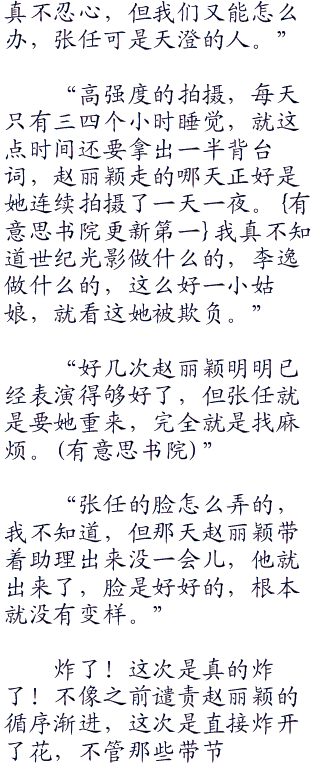 真不忍心，但我们又能怎么
办，张任可是天澄的人。”
“高强度的拍摄，每天
只有三四个小时睡觉，就这
点时间还要拿出一半背台
词，赵丽颖走的哪天正好是
她连续拍摄了一天一夜。{有
意思书院更新第一}我真不知
道世纪光影做什么的，李逸
做什么的，这么好一小姑
娘，就看这她被欺负。”
“好几次赵丽颖明明已
经表演得够好了，但张任就
是要她重来，完全就是找麻
烦。(有意思书院)”
“张任的脸怎么弄的，
我不知道，但那天赵丽颖带
着助理出来没一会儿，他就
出来了，脸是好好的，根本
就没有变样。”
炸了！这次是真的炸
了！不像之前谴责赵丽颖的
循序渐进，这次是直接炸开
了花，不管那些带节